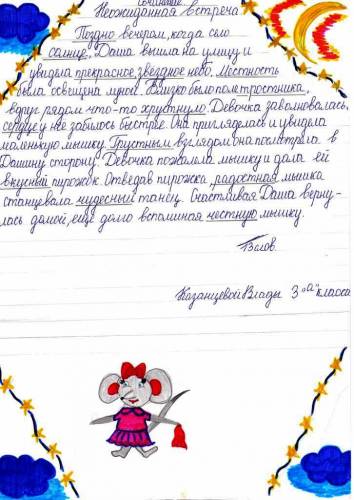 Сочинение
Неожиданная встреча
Поздно вечерам, когда село
солнце, Даша вышла на улицу и
увидела прекрасное, звёздное небо. Местность
была освещена луной. Близко было поле тростника,
вдруг рядом что-то хрустнуло. Девочка заволновалась,
сердце у неё забилось быстрее. Она пригляделась и увидела
маленькую мышку. Грустным взглядом она посмотрела в
Дашину сторону. Девочка пожалела мышку и дала ей
вкусный пирожок. Отведав пирожка, радостная мышка
станцевала чудесный танец. Счастливая Даша верну-
лась домой, ещё долго вспоминая честную мышку.
73 слов.
Казанцевой Влады 3 "а" класса